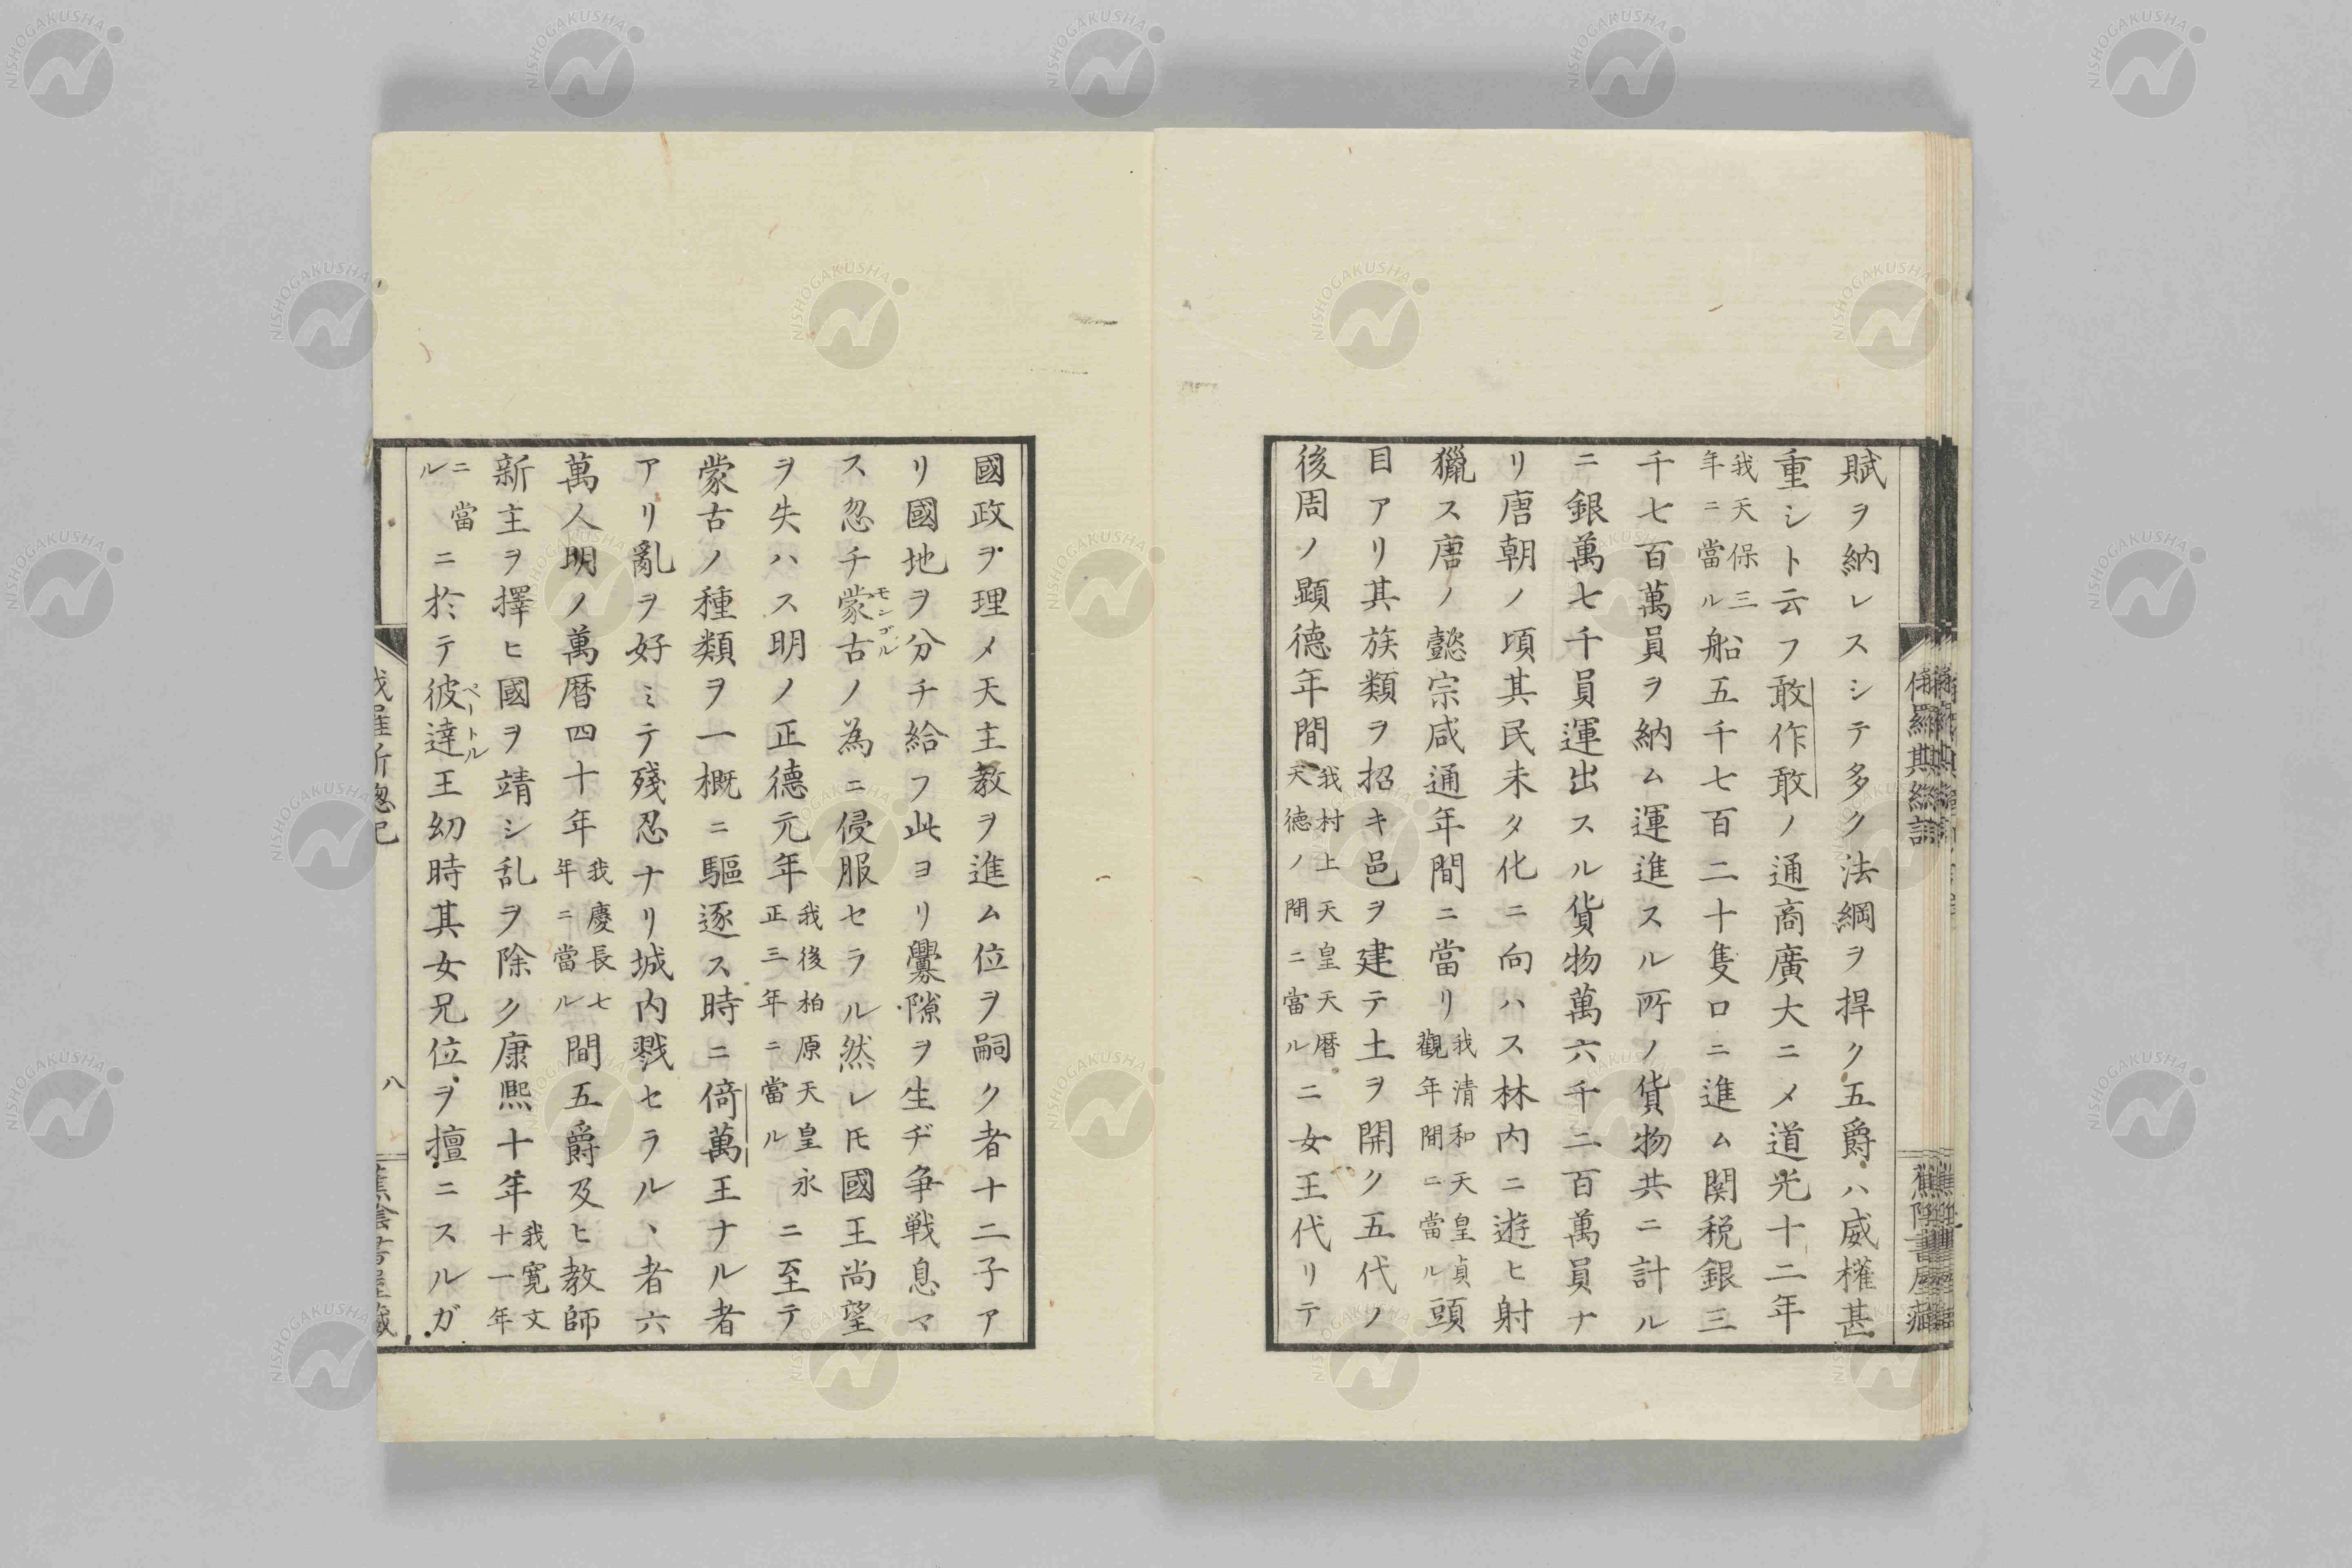 賦ヲ納レスシテ多ク法綱ヲ捍ク五爵ハ威權甚
重シト云フ敢作敢ノ通商廣大ニメ道光十二年
我天保三年ニ當ル船五千七百二十隻口ニ進ム関税銀三
千七百萬員ヲ納ム運進スル所ノ貨物共ニ計ル
ニ銀萬七千員運出スル貨物萬六千二百萬員ナ
リ唐朝ノ頃其民未タ化ニ向ハス林内ニ遊ヒ射
獵ス唐ノ懿宗咸通年間ニ當リ我清和天皇貞觀年間ニ當ル頭
目アリ其族類ヲ招キ邑ヲ建テ土ヲ開ク五代ノ
後周ノ顕德年間我村上天皇天暦天徳ノ間ニ當ルニ女王代リテ
國政ヲ理メ天主教ヲ進ム位ヲ嗣ク者十二子ア
リ國地ヲ分チ給フ此ヨリ釁隙ヲ生ヂ争戦息マ
ス忽チ蒙古モンゴルノ為ニ侵服セラル然レ𪜈國王尚望
ヲ失ハス明ノ正德元年我後柏原天皇永正三年ニ當ルニ至テ
蒙古ノ種類ヲ一概ニ驅逐ス時ニ倚萬王ナル者
アリ亂ヲ好ミテ殘忍ナリ城内戮セラルヽ者六
萬人明ノ萬暦四十年我慶長七年ニ當ル間五爵及ヒ教師
新主ヲ擇ヒ國ヲ靖シ乱ヲ除ク康熙十年我寛文十一年
ニ當ルニ於テ彼達ペートル王幼時其女兄位ヲ擅ニスルガ
八
NISHOGAKUSHA